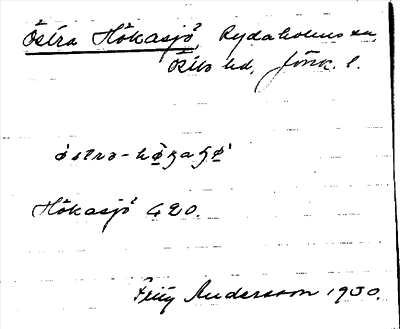 Östra Hökasjö, Rydaholms sn,
Östbo hd, Jönk. l.
Hökasjö GEO.
Fritz Andersson 1930.